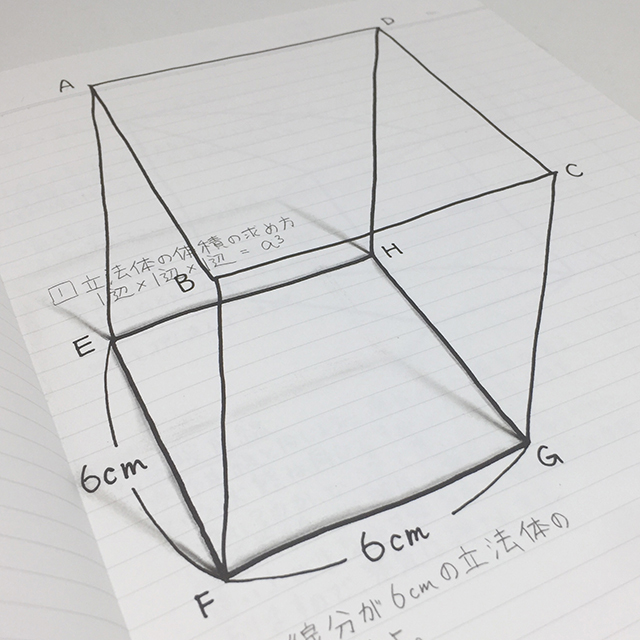 D
A
C
① 立法体の体積の求め方
1辺×1辺×1辺 = a3
B
H
E
G
6cm
6cm
F
線分が6cmの立法体の